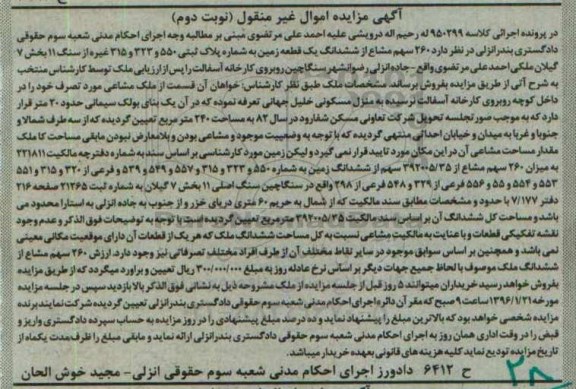 آگهی مزایده اموال غیر منقول (نوبت دوم)
در پرونده اجرائی کلاسه ۹۵۰۲۹۹ له رحیم اله درویشی علیه احمد علی مرتضوی مبنی بر مطالبه وجه اجرای احکام مدنی شعبه سوم حقوقی
دادگستری بندرانزلی در نظر دارد ۲۶۰ سهم مشاع از ششدانگ یک قطعه زمین به شماره پلاک ثبتی ۵۵۰ و ۳۲۳ و ۳۱۵ غیره از سنگ ۱۱ بخش ۷
گیلان ملکی احمد علی مرتضوی واقع - جاده انزلی رضوانشهر سنگاچین روبروی کارخانه آسفالت را پس از ارزیابی ملک توسط کارشناس منتخب
به شرح آتی از طریق مزایده بفروش برساند. مشخصات ملک طبق نظر کارشناس: خواهان آن قسمت از ملک مشاعی مورد تصرف خود را در
داخل کوچه روبروی کارخانه آسفالت نرسیده به منزل مسکونی خلیل جهانی تعرفه نموده که در آن یک بنای بولک سیمانی حدود ۲۰ متر قرار
دارد که به موجب صورتجلسه تحویل شرکت تعاونی مسکن شفارود در سال ۸۲ به مساحت ۲۴۰ متر مربع تعیین گردیده که از سه طرف شمالا و
جنوبا و غربا به میدان و خیابان احداثی منتهی گردیده که با توجه به وضعیت موجود و مشاعی بودن و بلامعارض نبودن مابقی مساحت کل ملک
مقدار مساحت مشاعی آن در این مکان مورد تایید قرار نمی گیرد و لیکن زمین مورد کارشناسی بر اساس سند به شماره دفترچه مالکیت ۲۲۱۸۱۱
به میزان ۲۶۰ سهم مشاع از ۳۹۲۰۰۵/۳۵ سهم از ششدانگ زمین به شماره ۵۵۰ و ۳۲۳ و ۳۱۵ و ۵۵۷ و ۵۴۹ و ۵۳۹ فرعی از ۳۲۰ و ۳۱۵ و ۵۵۱
۵۵۳ و ۵۵۴ و ۵۵ و ۵۵۶ فرعی از ۳۲۹ و ۵۴۸ فرعی از ۲۹۸ واقع در سنگاچین سنگ اصلی ۱۱ بخش ۷ گیلان به شماره ثبت ۲۱۲۶۵ صفحه ۲۱۶
دفتر ۷/۱۷۷ با حدود و مشخصات مطابق سند مالکیت که از شمال به حریم ۶۰ متری دریای خزر و از جنوب به جاده انزلی به آستارا محدود می
باشد و مساحت کل ششدانگ آن بر اساس سند مالکیت ۳۹۲۰۰۵/۳۵ متر مربع تعیین گردیده است با توجه به توضیحات فوق الذکر و عدم وجود
نقشه تفکیکی قطعات و با عنایت به مالکیت مشاعی نسبت به کل مساحت ششدانگ ملک که هر یک از قطعات آن دارای موقعیت مکانی معینی
نمی باشد و همچنین بر اساس سوابق موجود در سایر نقاط مختلف آن از طرف افراد مختلف تصرفاتی نیز وجود دارد. ارزش ۲۶۰ سهم مشاع از
ششدانگ ملک موصوف با لحاظ جمیع جهات دیگر بر اساس نرخ عادله روز به مبلغ ۳۰۰/۰۰۰/۰۰۰ ریال تعیین و برآورد میگردد که از طریق مزایده
بفروش خواهد رسید خریداران میتوانند ۵ روز قبل از جلسه مزایده از ملک مشروحه ذیل به نشانی فوق الذکر بازدید سپس در جلسه مزایده
مورخه ۱۳۹۶/۷/۲۱ ساعت ۹ صبح که مقر آن دایره اجرای احکام مدنی شعبه سوم حقوقی دادگستری بندرانزلی تعیین گردیده شرکت نمایند برنده
مزایده شخصی خواهد بود که بالاترین مبلغ را پیشنهاد نماید و ده درصد مبلغ پیشنهادی را در روز مزایده به حساب سپرده دادگستری واریز و
قبض را در وقت اداری همان روز به اجرای احکام مدنی شعبه سوم حقوقی دادگستری بندرانزلی ارائه نماید و مابقی مبلغ را ظرف مدت یکماه از
تاریخ مزایده تودیع نماید کلیه هزینه های قانونی بعهده خریدار میباشد.
ح ۶۴۱۲ دادورز اجرای احکام مدنی شعبه سوم حقوقی انزلی - مجید خوش الحان